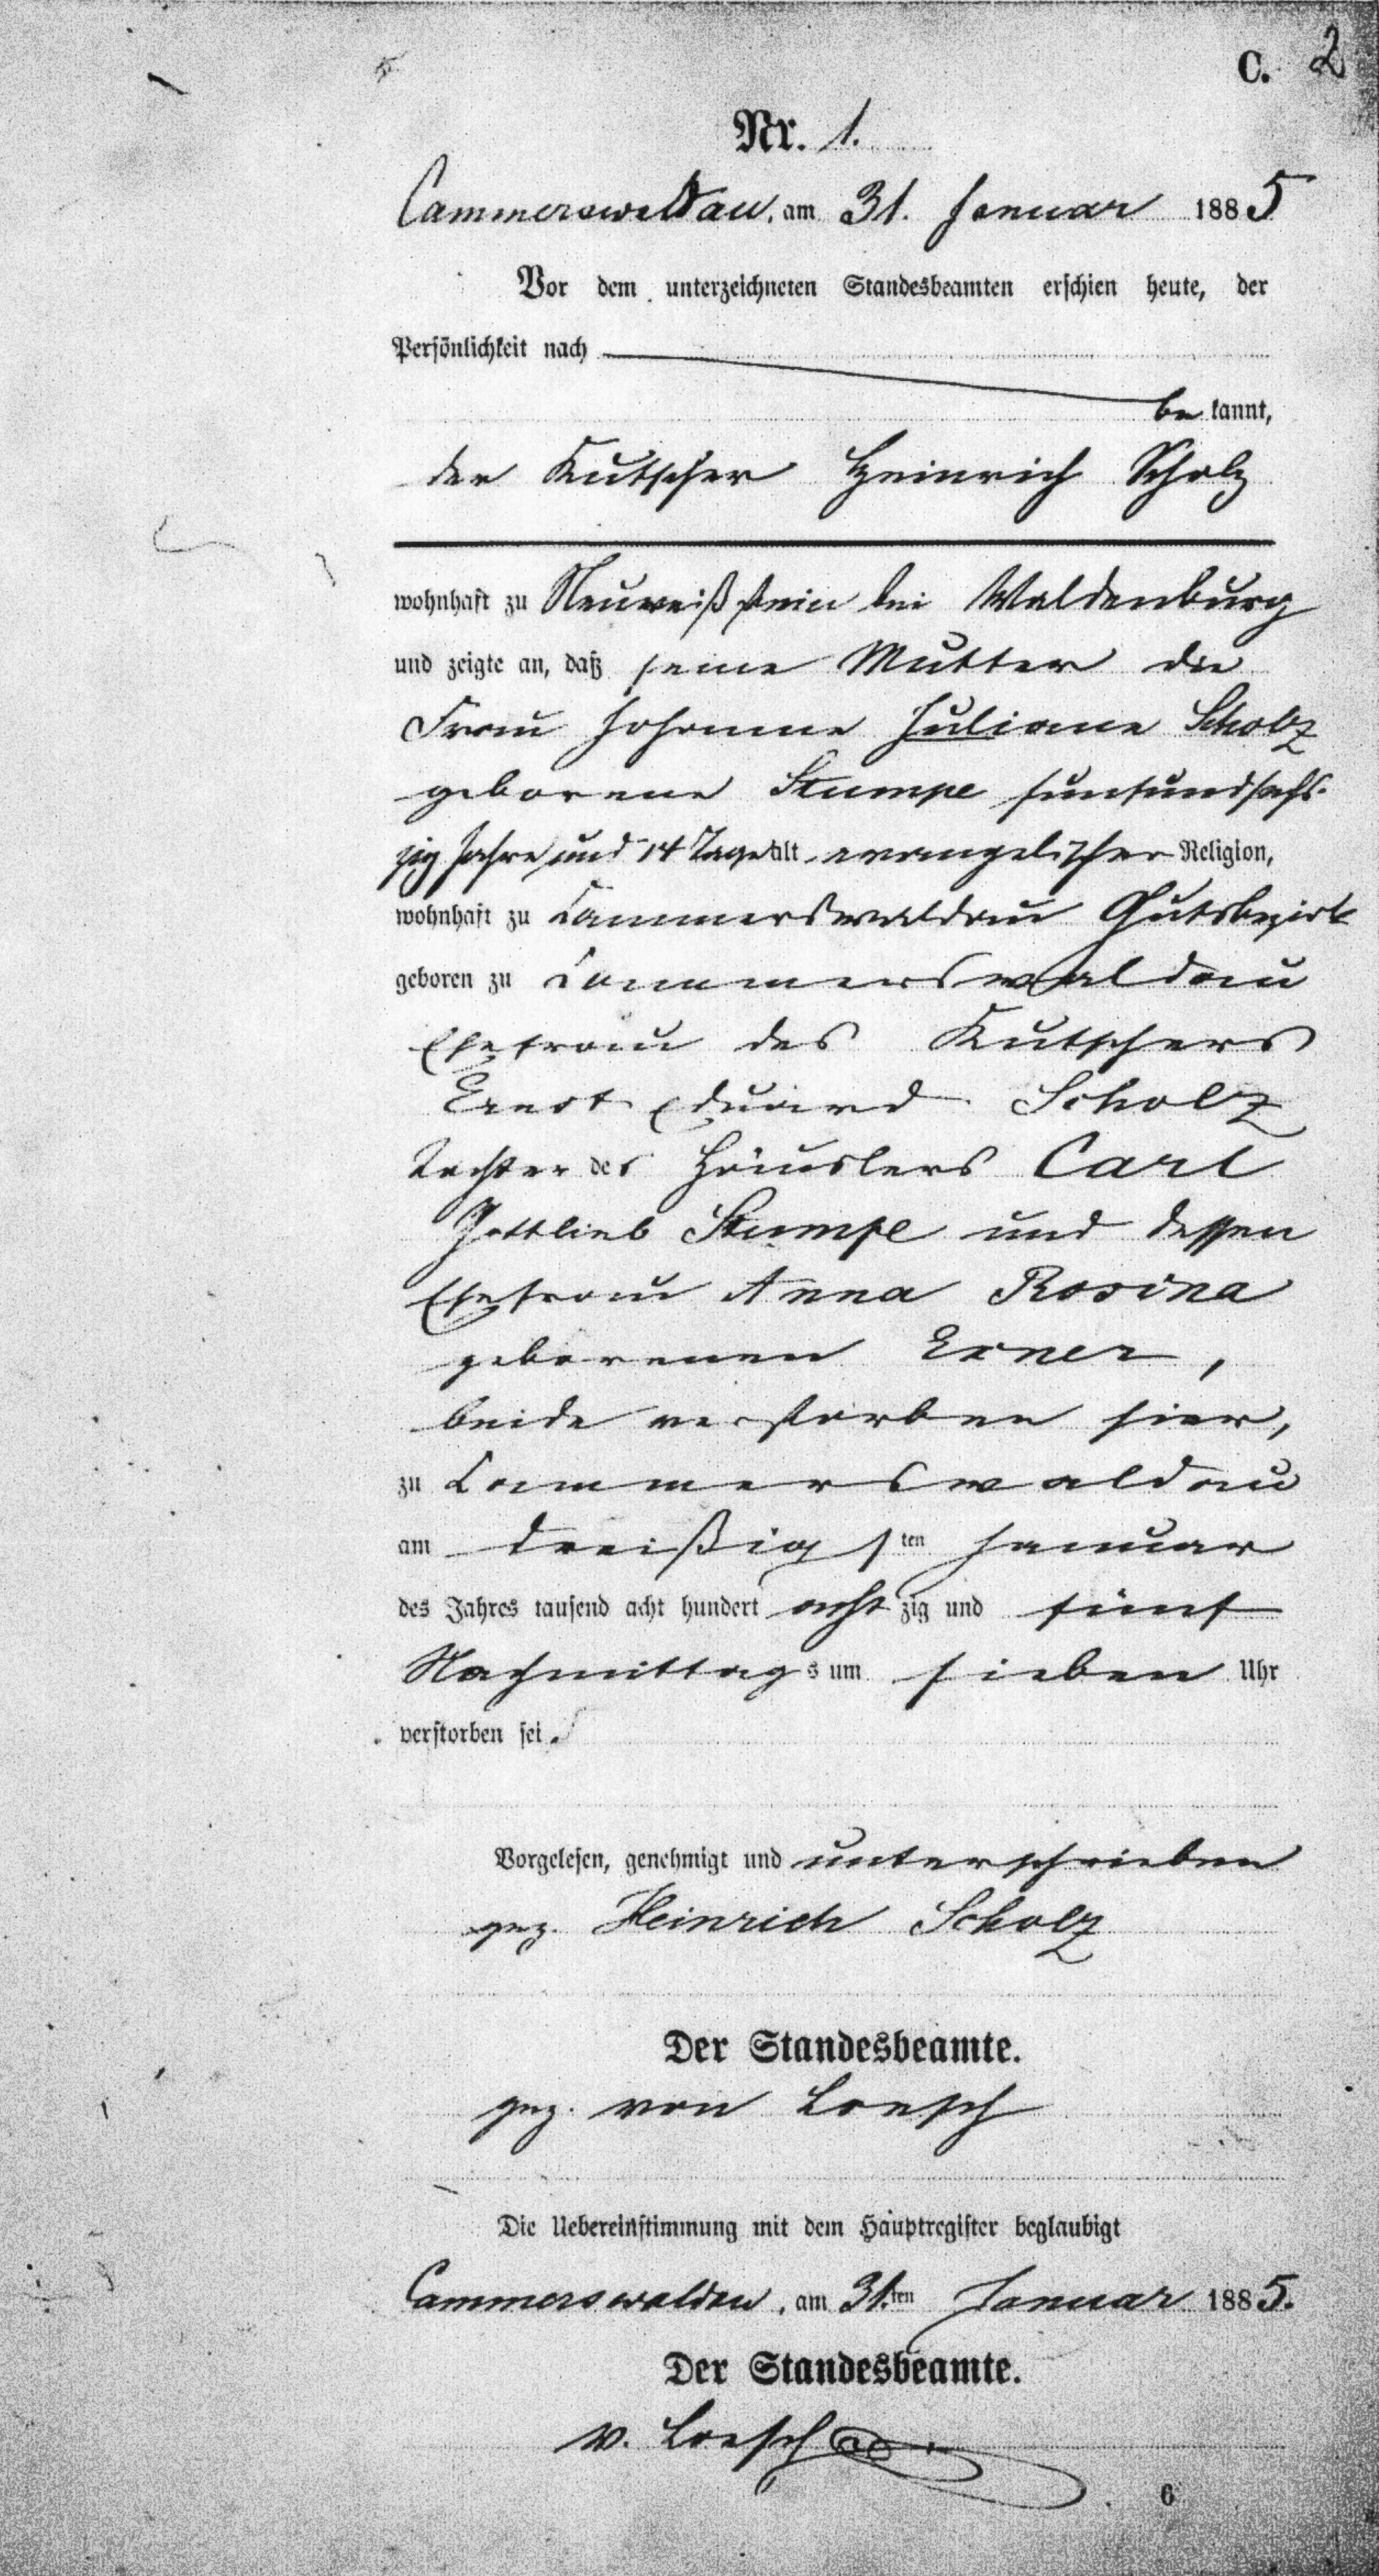 C. 2
Nr. 1.
Cammerswaldau, am 31. Januar 1885
Vor dem unterzeichneten Standesbeamten erschien heute, der
Persönlichkeit nach
be kannt,
der Kutscher Heinrich Scholz
wohnhaft zu Neuweißstein bei Waldenburg
und zeigte an, daß seine Mutter die
Frau Johanne Juliane Scholz
geborene Stumpe fünfundsechs-
zig Jahre und 14 Tage alt, evangelischer Religion,
wohnhaft zu Cammerswaldau Gutsbezirk
geboren zu Cammerswaldau
Ehefrau des Kutschers
Ernst Eduard Scholz
Tochter des Häuslers Carl
Gottlieb Stumpe und dessen
Ehefrau Anna Rosina
geborenen Exner,
beide verstorben hier,
zu Cammerswaldau
am dreißigsten Januar
des Jahres tausend acht hundert acht zig und fünf
Nachmittags um sieben Uhr
verstorben sei.
Vorgelesen, genehmigt und unterschrieben
gez. Heinrich Scholz
Der Standesbeamte.
gez. von Loesch
Die Uebereinstimmung mit dem Hauptregister beglaubigt
Cammerswaldau, am 31.ten Januar 1885.
Der Standesbeamte.
v. Loesch
6